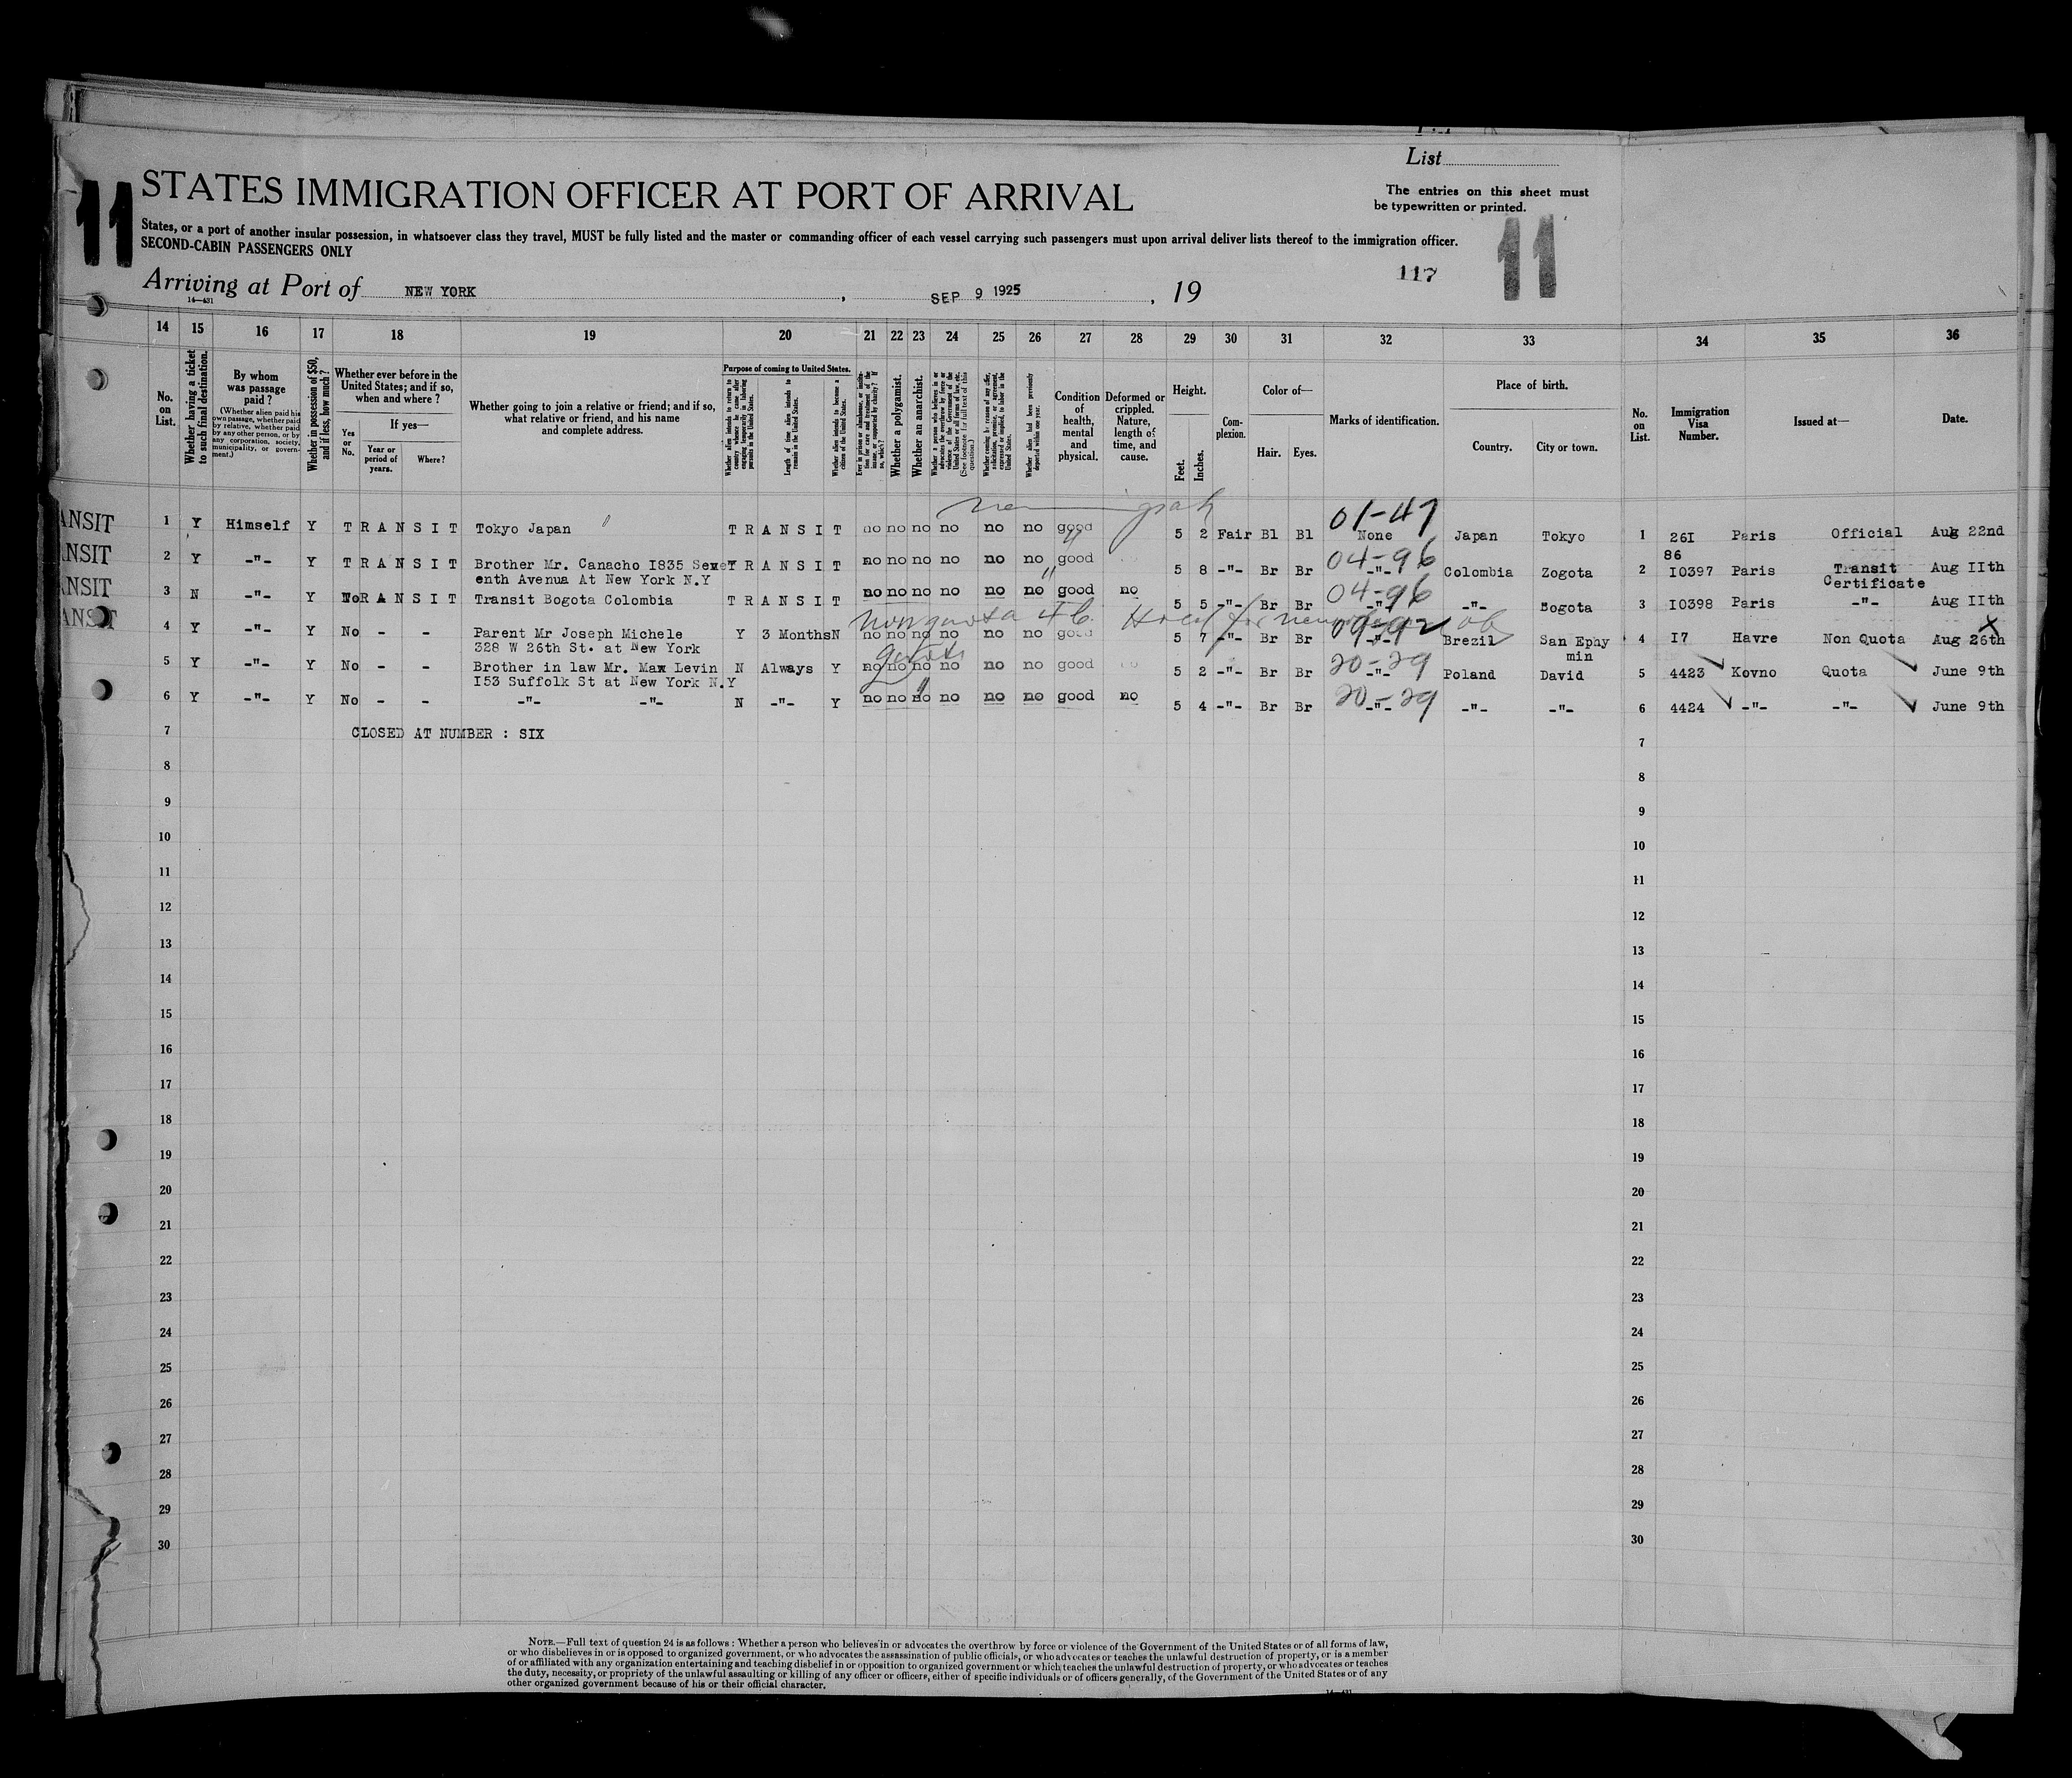 List
STATES IMMIGRATION OFFICER AT PORT OF ARRIVAL
The entries on this sheet must
be typewritten or printed.
11
11
States, or a port of another insular possession, in whatsoever class they travel, MUST be fully listed and the master or commanding officer of each vessel carrying such passengers must upon arrival deliver lists thereof to the immigration officer.
SECOND-CABIN PASSENGERS ONLY
117
Arriving at Port of NEW YORK, SEP 9 1925, 19
14—431
14 15 16 17 18 19 20 21 22 23 24 25 26 27 28 29 30 31 32 33 34 35 36
No. on List.
Whether having a ticket to such final destination.
By whom was passage paid?
(Whether alien paid his own passage, whether paid by relative, whether paid by any other person, or by any corporation, society, municipality, or government.)
Whether in possession of $50, and if less, how much?
Whether ever before in the United States; and if so, when and where?
Yes or No.
If yes—
Year or period of years.
Where?
Whether going to join a relative or friend; and if so, what relative or friend, and his name and complete address.
Purpose of coming to United States.
Whether alien intends to return to country whence he came after engaging temporarily in laboring pursuits in the United States.
Length of time alien intends to remain in the United States.
Whether alien intends to become a citizen of the United States.
Whether a polygamist.
Whether an anarchist.
Condition of health, mental and physical.
Deformed or crippled. Nature, length of time, and cause.
Height.
Feet.
Inches.
Complexion.
Color of—
Hair.
Eyes.
Marks of identification.
Place of birth.
Country.
City or town.
No. on List.
Immigration Visa Number.
Issued at—
Date.
ANSIT 1 Y Himself Y T R A N S I T Tokyo Japan T R A N S I T no no no no no no good 5 2 Fair Bl Bl 01-47 None Japan Tokyo 1 26I Paris Official Aug 22nd
86
ANSIT 2 Y -"- Y T R A N S I T Brother Mr. Canacho I835 Seve T R A N S I T no no no no no no good 5 8 -"- Br Br 04-96 -"- Colombia Zogota 2 I0397 Paris Transit Aug IIth
enth Avenua At New York N.Y Certificate
ANSIT 3 N -"- Y No R A N S I T Transit Bogota Colombia T R A N S I T no no no no no no good no 5 5 -"- Br Br 04-96 -"- -"- Bogota 3 I0398 Paris -"- Aug IIth
ANSIT 4 Y -"- Y No - - Parent Mr Joseph Michele Y 3 Months N no no no no no no good 5 7 -"- Br Br 09-92 -"- Brezil San Ephy 4 I7 Havre Non Quota Aug 26th
328 W 26th St. at New York min
5 Y -"- Y No - - Brother in law Mr. Max Levin N Always Y no no no no no no good 5 2 -"- Br Br 20-29 -"- Poland David 5 4423 Kovno Quota June 9th
I53 Suffolk St at New York N.Y
6 Y -"- Y No - - -"- -"- N -"- Y no no no no no no good no 5 4 -"- Br Br 20-29 -"- -"- -"- 6 4424 -"- -"- June 9th
7 CLOSED AT NUMBER : SIX 7
8 8
9 9
10 10
11 11
12 12
13 13
14 14
15 15
16 16
17 17
18 18
19 19
20 20
21 21
22 22
23 23
24 24
25 25
26 26
27 27
28 28
29 29
30 30
NOTE.—Full text of question 24 is as follows: Whether a person who believes in or advocates the overthrow by force or violence of the Government of the United States or of all forms of law,
or who disbelieves in or is opposed to organized government, or who advocates the assassination of public officials, or who advocates or teaches the unlawful destruction of property, or is a member
of or affiliated with any organization entertaining and teaching disbelief in or opposition to organized government or which teaches the unlawful destruction of property, or who advocates or teaches
the duty, necessity, or propriety of the unlawful assaulting or killing of any officer or officers, either of specific individuals or of officers generally, of the Government of the United States or of any
other organized government because of his or their official character.
14—431